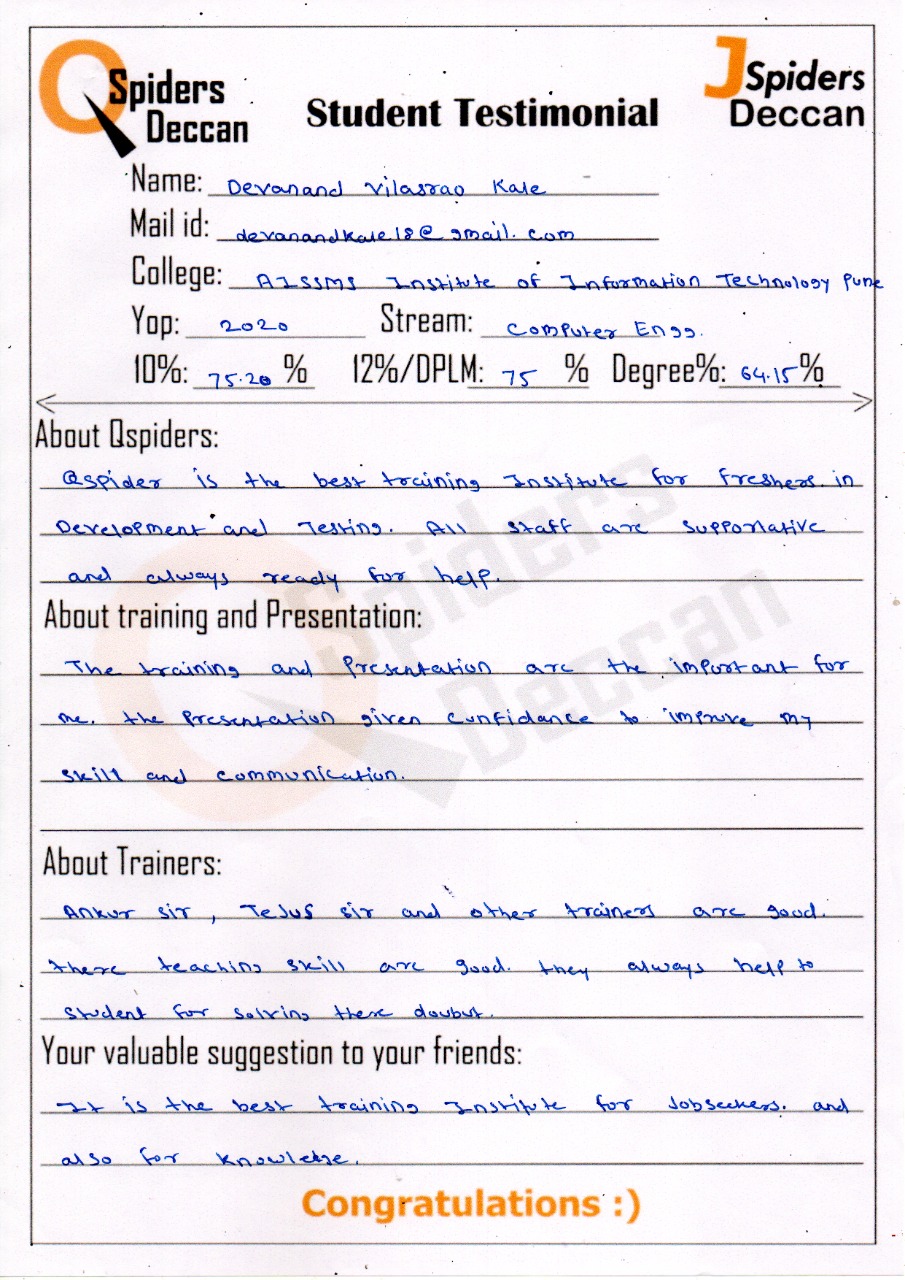 QSpiders
Deccan
Student Testimonial
JSpiders
Deccan
Name: Devanand Vilasrao Kale
Mail id: devanandkale18@gmail.com
College: AISSMS Institute of Information Technology Pune
Yop: 2020 Stream: Computer Engg.
10%: 75.20 % 12%/DPLM: 75 % Degree%: 64.15%
About Qspiders:
Qspider is the best training Institute for freshers in
Development and Testing. All staff are supportative
and always ready for help.
About training and Presentation:
The training and Presentation are the important for
me. the Presentation given confidance to improve my
skill and communication.
About Trainers:
Ankur sir, Tejus sir and other trainers are good.
there teaching skill are good. they always help to
student for solving there doubut.
Your valuable suggestion to your friends:
It is the best training Institute for Jobseekers. and
also for knowledge.
Congratulations :)
Spiders
Deccan